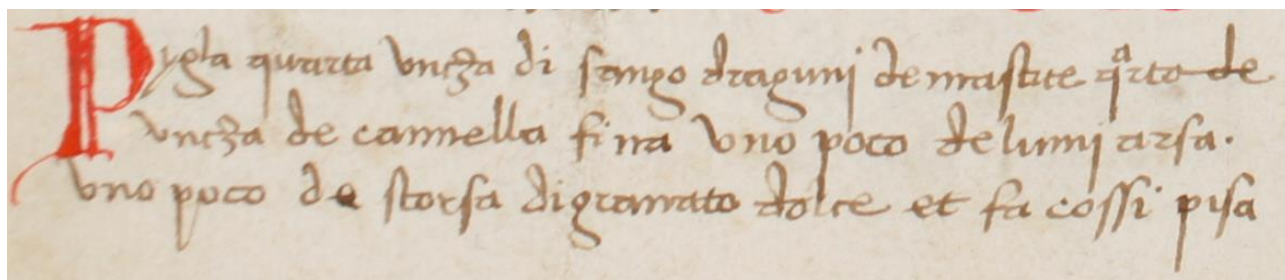 Pygla quarta vncza di sango draguni de mastice qͣrto de
vncza de cannella fina vno poco de lumi arsa.
vno poco de storsa di granato dolce et fa cossi pisa